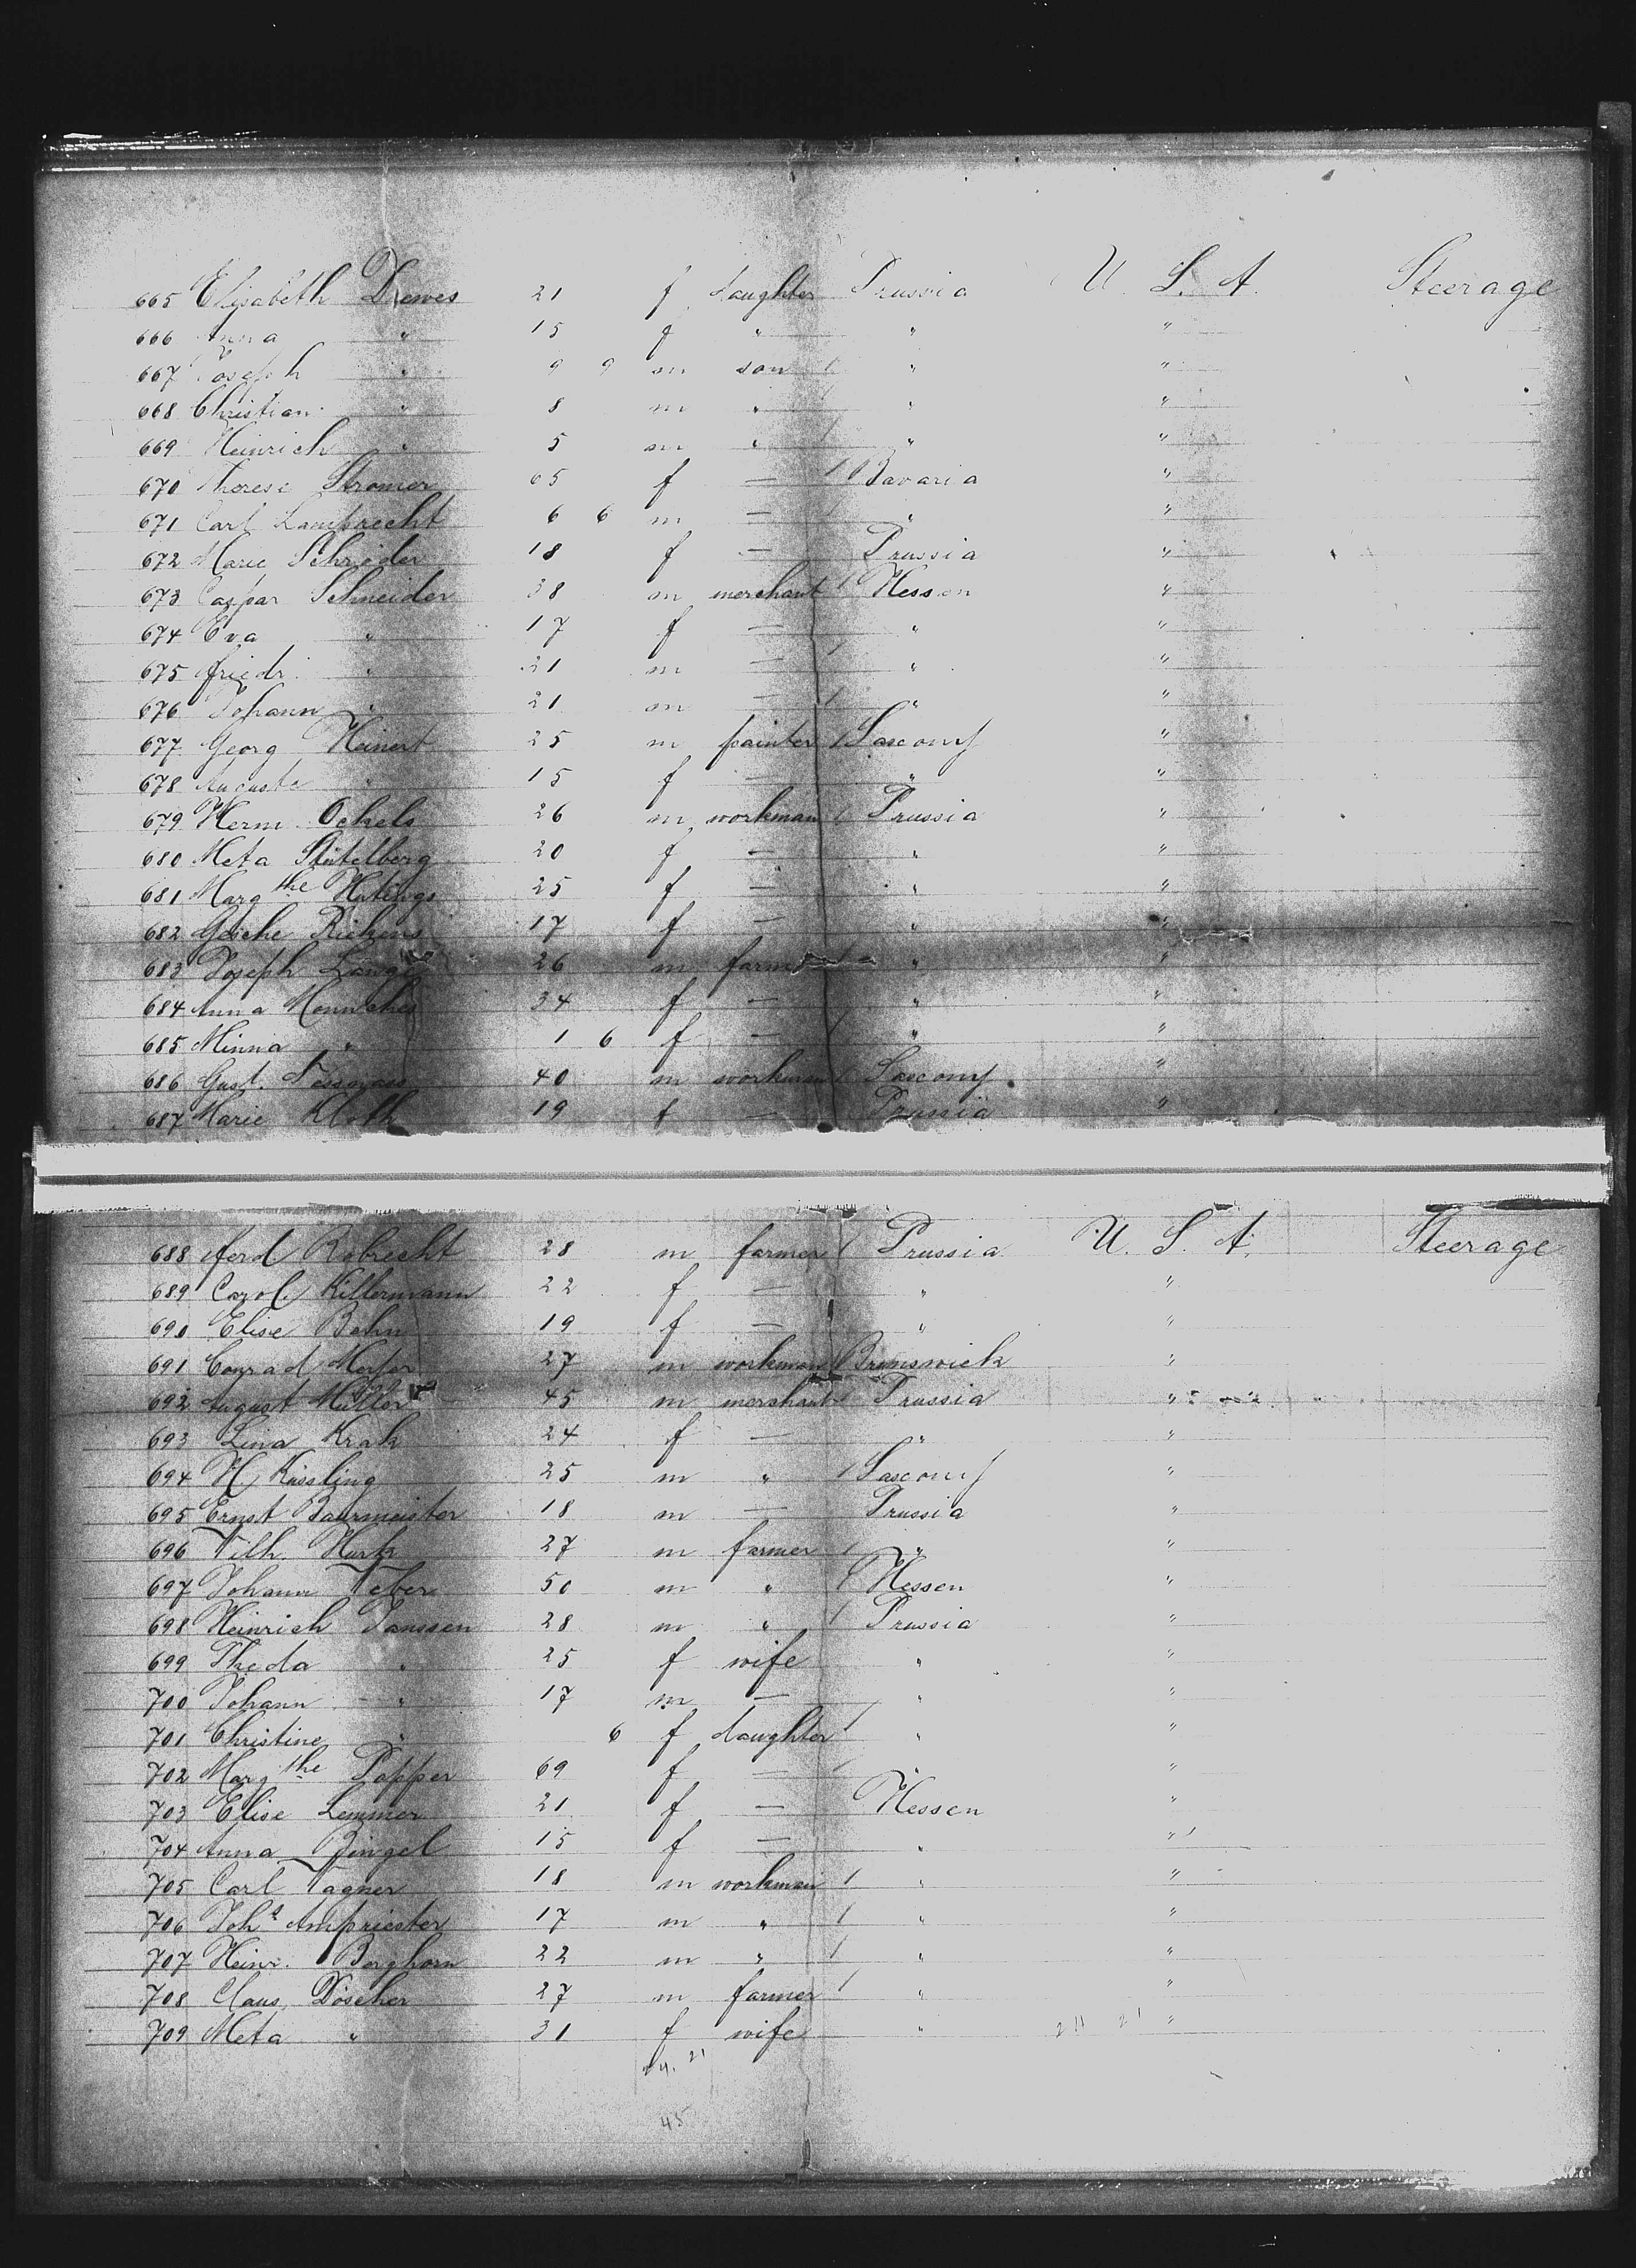 665 Elisabeth Dewes 21 f daughter Prussia U. S. A. Steerage
666 Anna " 15 f " " "
667 Joseph " 9 9 m son " "
668 Christian " 8 m " " "
669 Heinrich " 5 m " " "
670 Therese Stromer 65 f — Bavaria "
671 Carl Lamprecht 6 6 m — " "
672 Marie Schröder 18 f — Prussia "
673 Caspar Schneider 38 m merchant Hessen "
674 Eva " 17 f — " "
675 Friedr. " 21 m — " "
676 Johann " 21 m — " "
677 Georg Heinert 25 m painter Saxony "
678 Auguste " 15 f — " "
679 Herm. Ockels 26 m workman Prussia "
680 Meta Stütelberg 20 f — " "
681 Margthe 25 f — " "
682 Gesche Rickens 17 f — " "
683 Joseph Lange 26 m farmer " "
684 Anna 34 f — " "
685 Minna " 1 6 f — " "
686 Gust. 40 m workman Saxony "
687 Marie Kloth 19 f — Prussia "
688 Ferd Robrecht 28 m farmer Prussia U. S. A. Steerage
689 Carol. Killermann 22 f — " "
690 Elise Behn 19 f — " "
691 Conrad 27 m workman Brunswick "
692 August Müller 45 m merchant Prussia "
693 Lina Krak 24 f — " "
694 H. Kissling 25 m " Saxony "
695 Ernst Baurmeister 18 m — Prussia "
696 Wilh. 27 m farmer " "
697 Johann Weber 50 m " Hessen "
698 Heinrich Janssen 28 m " Prussia "
699 Theda " 25 f wife " "
700 Johann " 17 m — " "
701 Christine " 6 f daughter " "
702 Margthe Popper 69 f — " "
703 Elise Lemmer 21 f — Hessen "
704 Anna Bingel 15 f — " "
705 Carl Wagner 18 m workman " "
706 Joh. Ampriester 17 m " " "
707 Heinr. Berghorn 22 m " " "
708 Claus Döscher 27 m farmer " "
709 Meta " 31 f wife " 24 21 "
24. 21
45